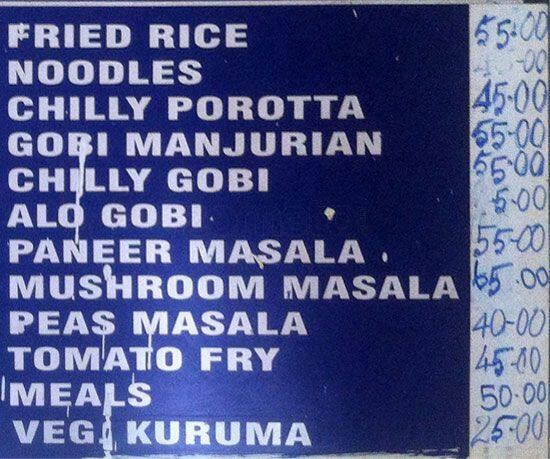 FRIED RICE 55.00
NOODLES .00
CHILLY POROTTA 45.00
GOBI MANJURIAN 55.00
CHILLY GOBI 55.00
ALO GOBI 5.00
PANEER MASALA 55-00
MUSHROOM MASALA 65.00
PEAS MASALA 40-00
TOMATO FRY 45.00
MEALS 50.00
VEG. KURUMA 25.00